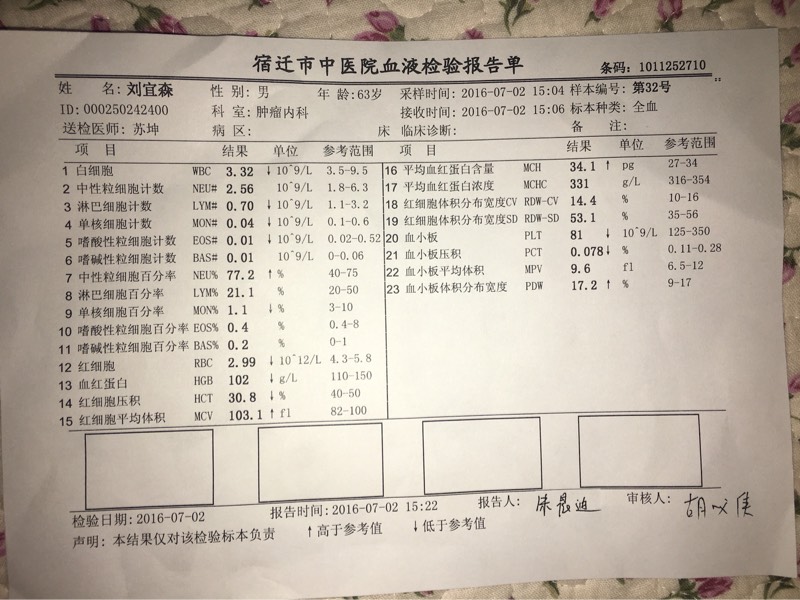 宿迁市中医院血液检验报告单
条码: 1011252710
姓 名: 刘宜森 性 别: 男 年 龄: 63岁 采样时间: 2016-07-02 15:04 样本编号: 第32号
ID: 000250242400 科 室: 肿瘤内科 接收时间: 2016-07-02 15:06 标本种类: 全血
送检医师: 苏坤 病 区: 床 临床诊断: 备 注:
项 目 结果 单位 参考范围 项 目 结果 单位 参考范围
1 白细胞 WBC 3.32 ↓ 10^9/L 3.5-9.5
2 中性粒细胞计数 NEU# 2.56 10^9/L 1.8-6.3
3 淋巴细胞计数 LYM# 0.70 ↓ 10^9/L 1.1-3.2
4 单核细胞计数 MON# 0.04 ↓ 10^9/L 0.1-0.6
5 嗜酸性粒细胞计数 EOS# 0.01 ↓ 10^9/L 0.02-0.52
6 嗜碱性粒细胞计数 BAS# 0.01 10^9/L 0-0.06
7 中性粒细胞百分率 NEU% 77.2 ↑ % 40-75
8 淋巴细胞百分率 LYM% 21.1 % 20-50
9 单核细胞百分率 MON% 1.1 ↓ % 3-10
10 嗜酸性粒细胞百分率 EOS% 0.4 % 0.4-8
11 嗜碱性粒细胞百分率 BAS% 0.2 % 0-1
12 红细胞 RBC 2.99 ↓ 10^12/L 4.3-5.8
13 血红蛋白 HGB 102 ↓ g/L 110-150
14 红细胞压积 HCT 30.8 ↓ % 40-50
15 红细胞平均体积 MCV 103.1 ↑ fl 82-100
16 平均血红蛋白含量 MCH 34.1 ↑ pg 27-34
17 平均血红蛋白浓度 MCHC 331 g/L 316-354
18 红细胞体积分布宽度CV RDW-CV 14.4 % 10-16
19 红细胞体积分布宽度SD RDW-SD 53.1 % 35-56
20 血小板 PLT 81 ↓ 10^9/L 125-350
21 血小板压积 PCT 0.078 ↓ % 0.11-0.28
22 血小板平均体积 MPV 9.6 fl 6.5-12
23 血小板体积分布宽度 PDW 17.2 ↑ % 9-17
检验日期: 2016-07-02 报告时间: 2016-07-02 15:22 报告人: 审核人:
声明: 本结果仅对该检验标本负责 ↑高于参考值 ↓低于参考值